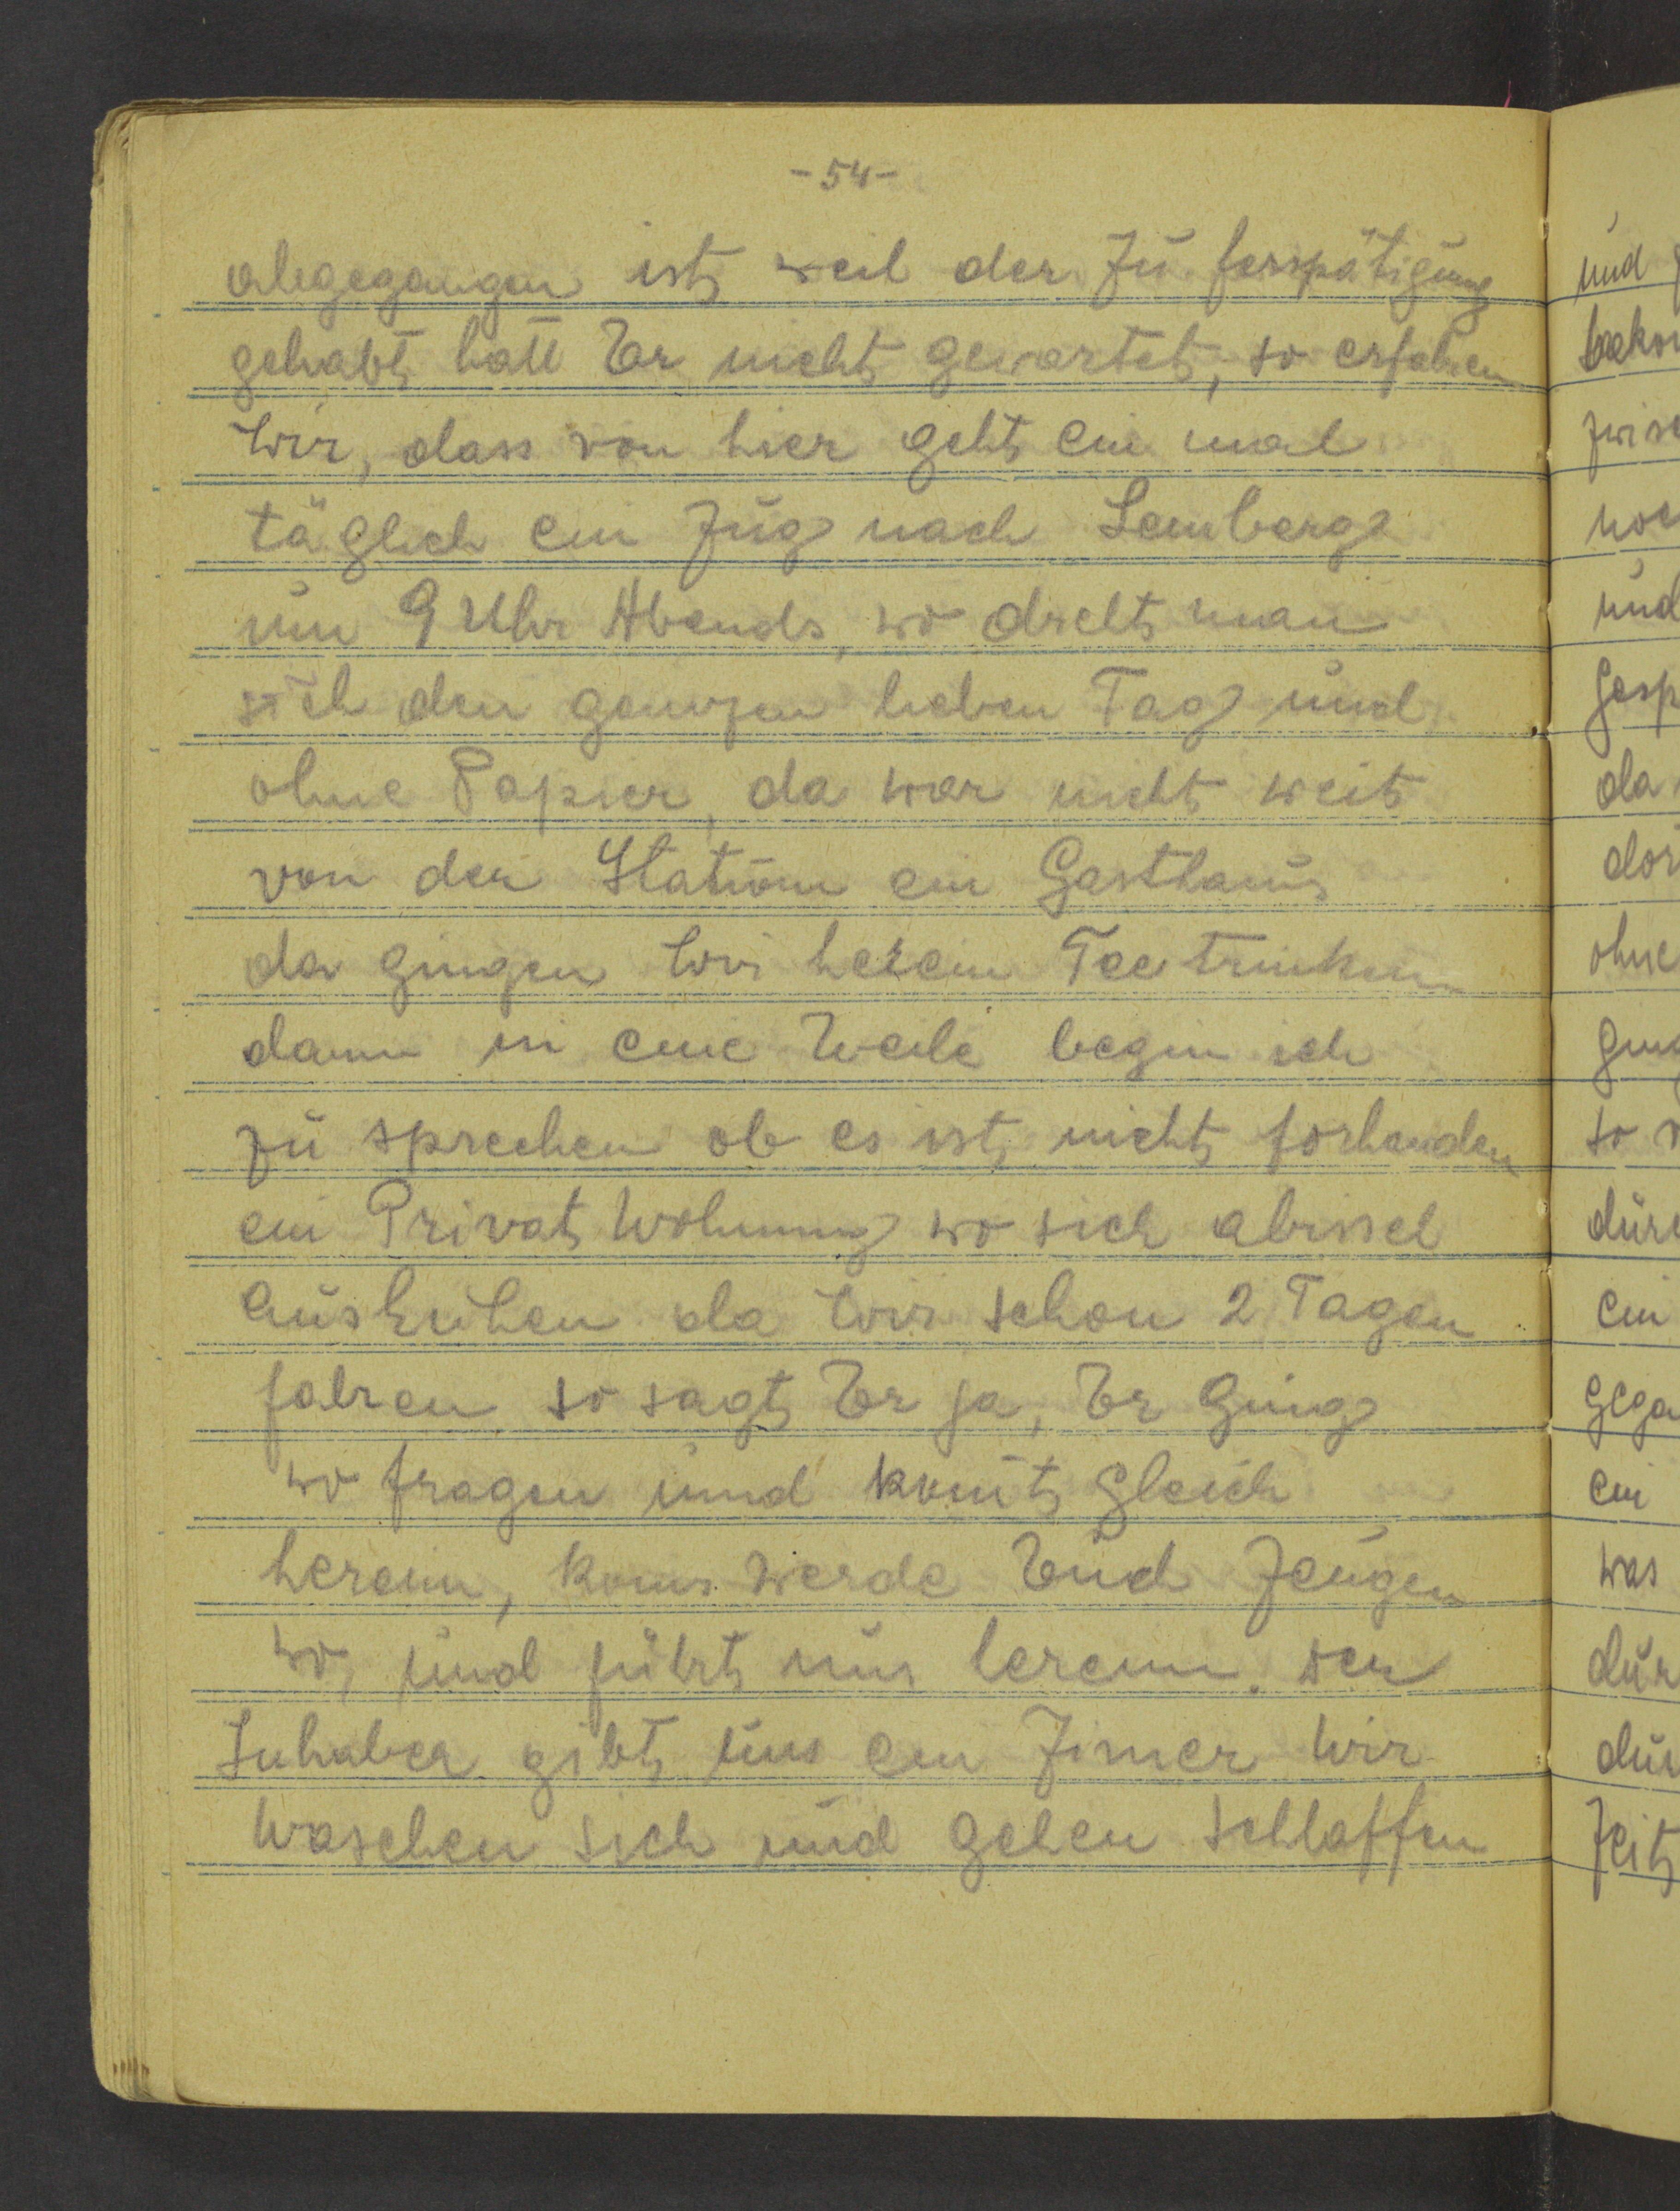 -54-
abgegangen ist, weil der Zu ferspätigung
gehabt hatt Er nicht gewartet, so erfahren
Wir, dass von hier geht ein mal
täglich ein Zug nach Lemberg
um 9 Uhr Abends, wo dreht man
sich den ganzen lieben Tag und
ohne Papier, da war nicht weit
von der Station ein Gasthaus
da gingen Wir herein Tee trinken
dann in eine Weile begin ich
zu sprechen ob es ist nicht forhanden
ein Privat Wohnung wo sich abissel
ausruhen da Wir schon 2 Tagen
fahren so sagt Er ja, Er Ging
wo fragen und komt gleich
herein, kom werde Euch Zeugen
wo, und führt uns herein. der
Inhaber gibt uns ein Zimer Wir
Waschen sich und gehen schlaffen
und
zwisc
noc
und
gesp
da
dor
ohne
ging
so
durc
ein
gega
ein
was
dur
Zeit